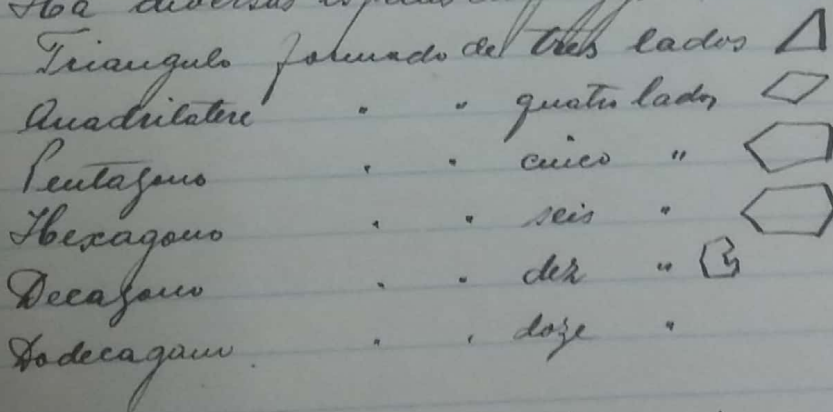 Ha diversas
Triangulo formado de tres lados
Quadrilatere " " quatro lados
Pentagono " " cinco "
Hexagono " " seis "
Decagono " " dez "
Dodecagono " " doze "